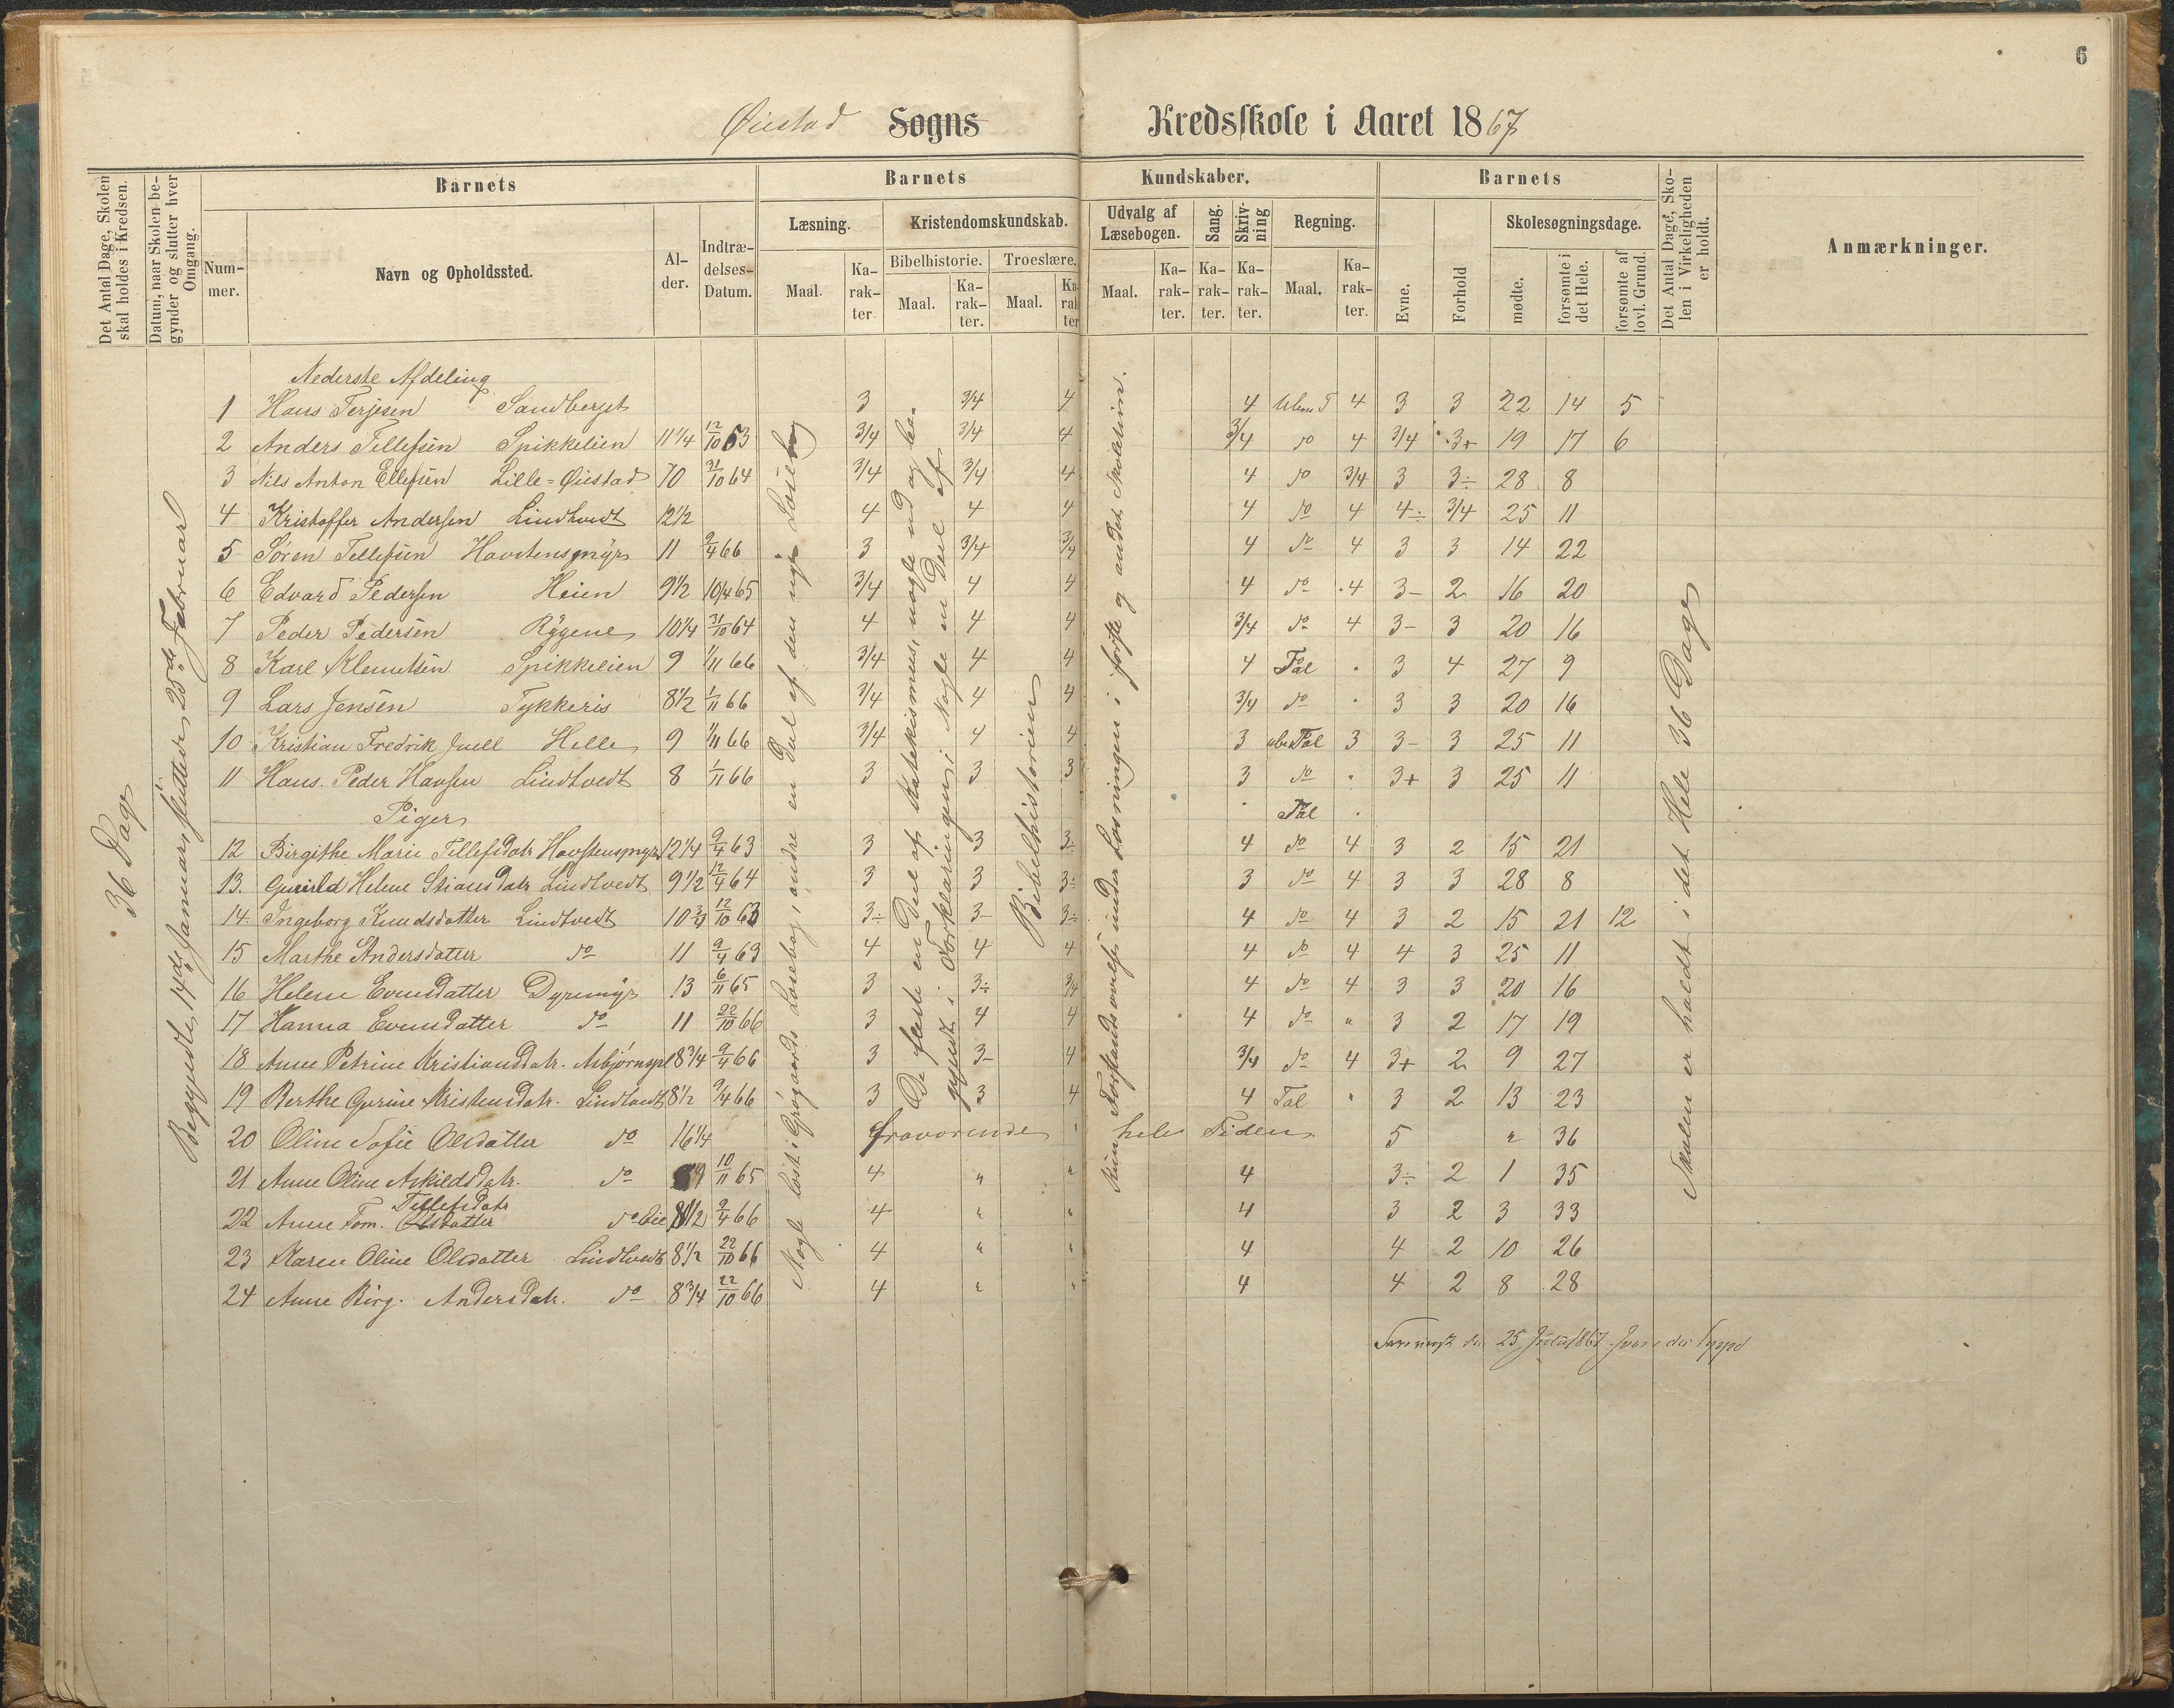 6
Øiestad Sogns Kredsskole i Aaret 1867
Det Antal Dage, Skolen skal holdes i Kredsen.
Datum, naar Skolen begynder og slutter hver Omgang.
Barnets
Num-mer.
Navn og Opholdssted.
Al-der.
Indtræ-delses-Datum.
Barnets Kundskaber.
Læsning.
Maal.
Ka-rak-ter
Kristendomskundskab.
Bibelhistorie.
Maal.
Ka-rak-ter.
Troeslære.
Maal.
Ka-rak-ter
Udvalg af Læsebogen.
Maal.
Ka-rak-ter.
Sang.
Ka-rak-ter.
Skriv-ning
Ka-rak-ter.
Regning.
Maal.
Ka-rak-ter.
Barnets
Evne.
Forhold
Skolesøgningsdage.
mødte.
forsømte i det Hele.
forsømte af lovl. Grund.
Det Antal Dage, Sko-len i Virkeligheden er holdt.
Anmærkninger.
36 Dage
Begyndte 14de Januar, slutter 25de Februar
Nederste Afdeling
1 Hans Terjesen Sandberget 3 3/4 4 4 4 3 3 22 14 5
2 Anders Tellefsen Spikkelien 11 1/4 12/10 63 3/4 3/4 4 3/4 do 4 3/4 3+ 19 17 6
3 Nils Anton Ellefsen Lille=Øiestad 10 31/10 64 3/4 3/4 4 4 do 3/4 3 3÷ 28 8
4 Kristoffer Andersen Lindtvedt 12 1/2 4 4 4 4 do 4 4÷ 3/4 25 11
5 Søren Tellefsen Havstensmyr 11 9/4 66 3 3/4 3/4 4 do 4 3 3 14 22
6 Edvard Pedersen Heien 9 1/2 10/4 65 3/4 4 4 4 do 4 3- 2 16 20
7 Peder Pedersen Rygene 10 1/4 31/10 64 4 4 4 3/4 do 4 3- 3 20 16
8 Karl Klemetsen Spikkelien 9 1/11 66 3/4 4 4 4 Tal 3 4 27 9
9 Lars Jensen Tykkeris 8 1/2 1/11 66 3/4 4 4 3/4 do 3 3 20 16
10 Kristian Fredrik Juell Helle 9 1/11 66 3/4 4 4 3 Tal 3 3- 3 25 11
11 Hans Peder Hansen Lindtvedt 8 1/11 66 3 3 3 3 do 3+ 3 25 11
Piger Tal
12 Birgithe Marie Tellefsdatr Havstensmyr 12 1/4 9/4 63 3 3 3÷ 4 do 4 3 2 15 21
13. Gunild Helene Stiansdatr Lindtvedt 9 1/2 12/4 64 3 3 3÷ 3 do 4 3 3 28 8
14. Ingeborg Knudsdatter Lindtvedt 10 3/4 12/10 63 3÷ 3- 3÷ 4 do 4 3 2 15 21 12
15 Marthe Andersdatter do 11 9/4 63 4 4 4 4 do 4 4 3 25 11
16 Helene Evensdatter Dyremyr 13 6/11 65 3 3÷ 3/4 4 do 4 3 3 20 16
17 Hanna Evensdatter do 11 22/10 66 3 4 4 4 do " 3 2 17 19
18 Anne Petrine Kristiansdatr. Asbjørnspl 8 3/4 9/4 66 3 3- 4 3/4 do 4 3+ 2 9 27
19 Berthe Gurine Kristensdatr. Lindtvedt 8 1/2 9/4 66 3 3 4 4 Tal " 3 2 13 23
20 Oline Sofie Olsdatter do 16 1/4 fraværende hele Tiden 5 " 36
21 Anne Oline Askildsdatr. do 9 10/11 65 4 " " 4 3÷ 2 1 35
22 Anne Tom. Tellefsdatr do 8 1/2 9/4 66 4 " " 4 3 2 3 33
23 Karen Oline Olsdatter Lindtvedt 8 1/2 22/10 66 4 " " 4 4 2 10 26
24 Anne Birg. Andersdatr. do 8 3/4 22/10 66 4 " " 4 4 2 8 28
Nogle læst i Grøgaards Læsebog, andre en Deel af den nye Læsebog
De fleste en Deel af Katekismus, nogle ud og begyndt i Forklaringen; Nogle en Deel af Bibelhistorien
Kun Forstandsøvelse under Læsningen i første og andet Skoletrin.
Skolen er holdt i det Hele 36 Dage
25 Juli 1867